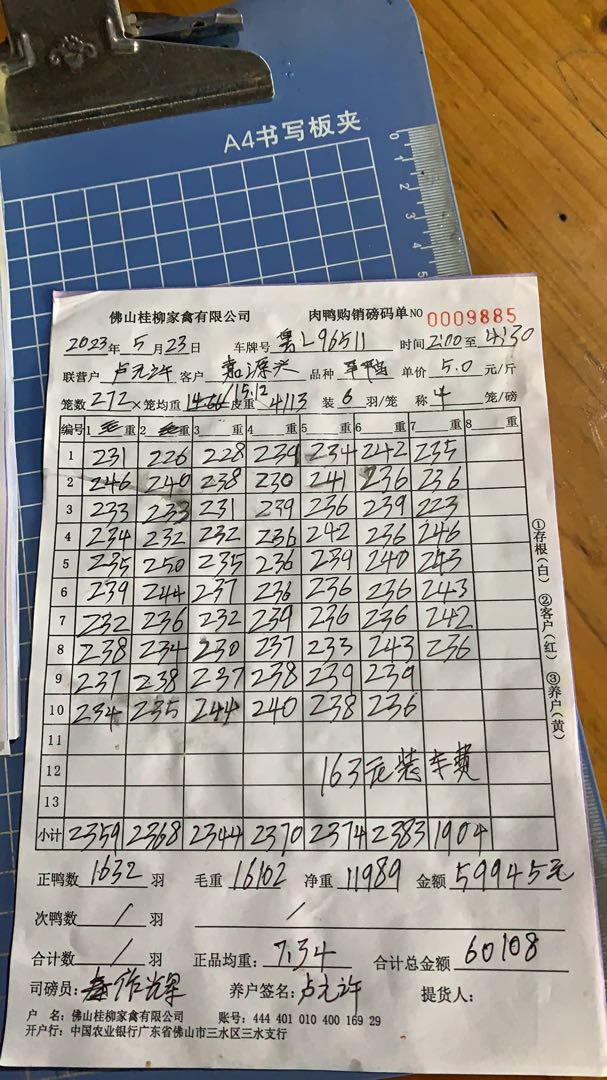 A4书写板夹
0
1
2
3
4
5
佛山桂柳家禽有限公司 肉鸭购销磅码单 NO 0009885
2023年 5月23日 车牌号 粤L96511 时间 2:00 至 4:30
联营户 卢元许 客户 嘉源兴 品种 单价 5.0 元/斤
笼数 272 ×笼均重 15.12 皮重 4113 装 6 羽/笼 称 4 笼/磅
编号 1 毛重 2 毛重 3 重 4 重 5 重 6 重 7 重 8 重
1 231 226 228 239 234 242 235
2 246 240 238 230 241 236 236
3 233 233 231 239 236 239 223
4 234 232 232 236 242 236 246
5 235 250 235 236 239 240 243
6 239 244 237 236 236 236 243
7 232 236 232 239 236 236 242
8 238 234 230 237 233 243 236
9 237 238 237 238 239 239
10 234 235 244 240 238 236
11
12 163元装车费
13
小计 2359 2368 2344 2370 2374 2383 1904
①存根(白) ②客户(红) ③养户(黄)
正鸭数 1632 羽 毛重 16102 净重 11989 金额 59945元
次鸭数 / 羽 /
合计数 / 羽 正品均重: 7.34 合计总金额 60108
司磅员: 养户签名: 卢元许 提货人:
户 名: 佛山桂柳家禽有限公司 账号: 444 401 010 400 169 29
开户行: 中国农业银行广东省佛山市三水区三水支行